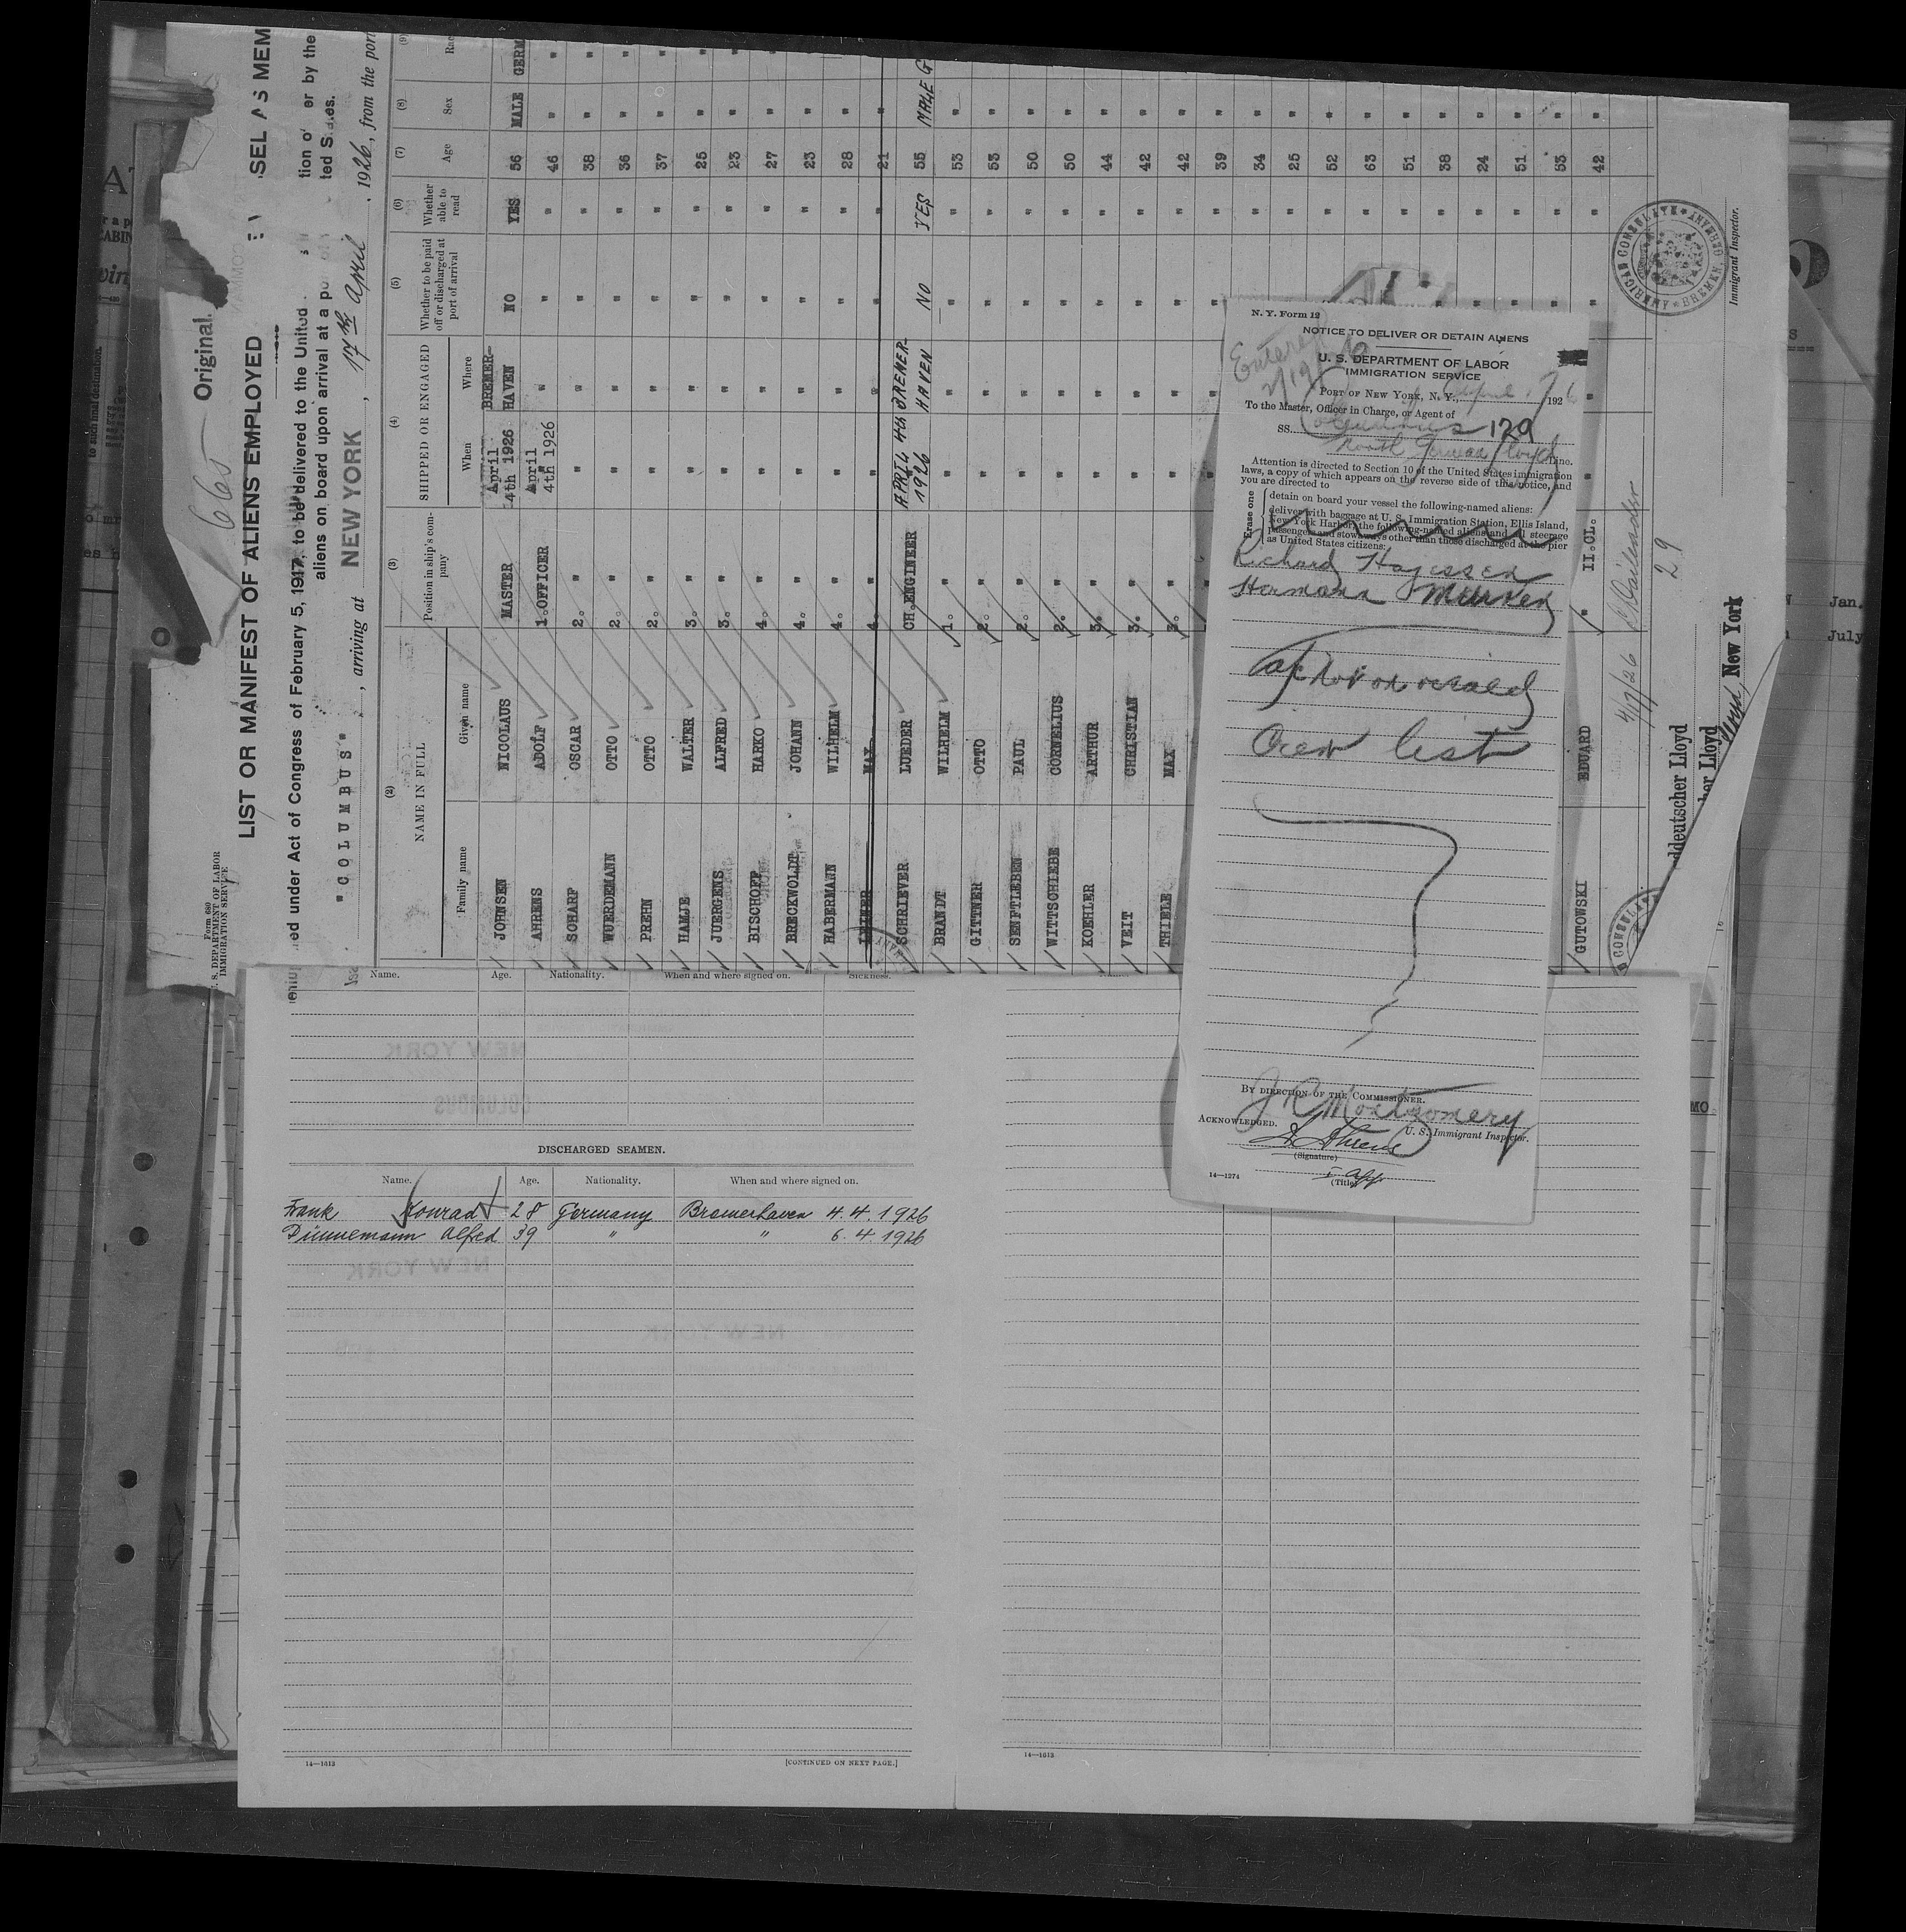 Form 680
U. S. DEPARTMENT OF LABOR
IMMIGRATION SERVICE
Original.
665
LIST OR MANIFEST OF ALIENS EMPLOYED
SEL AS MEM
ed under Act of Congress of February 5, 1917, to be delivered to the United
tion o er by the
aliens on board upon arrival at a po
ted S es.
"COLUMBUS", arriving at NEW YORK, 17th April, 1926, from the port
(2) (3) (4) (5) (6) (7) (8) (9)
NAME IN FULL
Family name Given name
Position in ship's company
SHIPPED OR ENGAGED
When Where
Whether to be paid off or discharged at port of arrival
Whether able to read
Age Sex Rac
JOHNSEN NICOLAUS MASTER April 4th 1926 BREMER-HAVEN NO YES 56 MALE GERM
AHRENS ADOLF 1.OFFICER April 4th 1926 " " " 46 " "
SCHARF OSCAR 2. " " " " " 38 " "
WUERDEMANN OTTO 2. " " " " " 36 " "
PREHN OTTO 2. " " " " " 37 " "
HAMJE WALTER 3. " " " " " 25 " "
JUERGENS ALFRED 3. " " " " " 23 " "
BISCHOFF HARKO 4. " " " " " 27 " "
BRECKWOLDT JOHANN 4. " " " " " 23 " "
HABERMANN WILHELM 4. " " " " " 28 " "
MAX 4. " " " " " 21 "
SCHRIEVER LUEDER CH.ENGINEER APRIL 4th 1926 BREMER-HAVEN NO YES 55 MALE G
BRANDT WILHELM 1. " " " " " 53 "
GITTNER OTTO 2. " " " " " 53 "
SENFTLEBEN PAUL 2. " " " " " 50 "
WITTSCHIEBE CORNELIUS 2. " " " " " 50 "
KOEHLER ARTHUR 3. " " " " " 44 "
VEIT CHRISTIAN 3. " " " " " 42 "
THIELE MAX 3. " " " " " 42 "
" 39 "
" 34 "
" 25 "
" 52 "
" 63 "
" 51 "
" 38 "
" 24 "
" 51 "
" 53 "
GUTOWSKI EDUARD " II.CL. " " " " 42 "
4/17/26
29
AMERICAN CONSULATE
BREMEN, GERMANY
Immigrant Inspector.
ddeutscher Lloyd
her Lloyd
New York
N. Y. Form 12
NOTICE TO DELIVER OR DETAIN ALIENS
U. S. DEPARTMENT OF LABOR
IMMIGRATION SERVICE
Entered
PORT OF NEW YORK, N. Y., April 17 1926
To the Master, Officer in Charge, or Agent of
SS. Columbus 129
North German Lloyd Line.
Attention is directed to Section 10 of the United States immigration
laws, a copy of which appears on the reverse side of this notice, and
you are directed to
Erase one
detain on board your vessel the following-named aliens:
deliver with baggage at U. S. Immigration Station, Ellis Island,
New York Harbor, the following-named aliens and all steerage
passengers and stowaways other than those discharged at the pier
as United States citizens:
Richard
Hermann
list
BY DIRECTION OF THE COMMISSIONER.
J R Montgomery
U. S. Immigrant Inspector.
ACKNOWLEDGED.
(Signature)
(Title)
14—1274
Name. Age. Nationality. When and where signed on. Sickness.
DISCHARGED SEAMEN.
Name. Age. Nationality. When and where signed on.
Frank Konrad 28 Germany Bremerhaven 4.4.1926
Dünnemann Alfred 39 " " 6.4.1926
14—1613
[CONTINUED ON NEXT PAGE.]
14—1613
Jan.
July